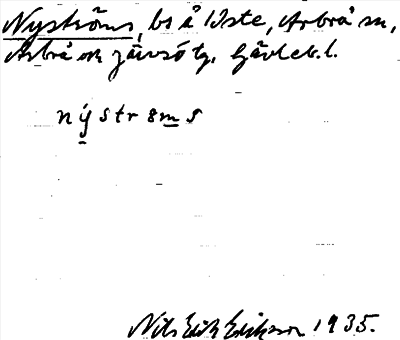 Nyströms, bs å Öste, Arbrå sn,
Arbrå ok Järvsö tg. Gävleb. l.
nýstrꞷms
Nils Erik Erikson 1935.